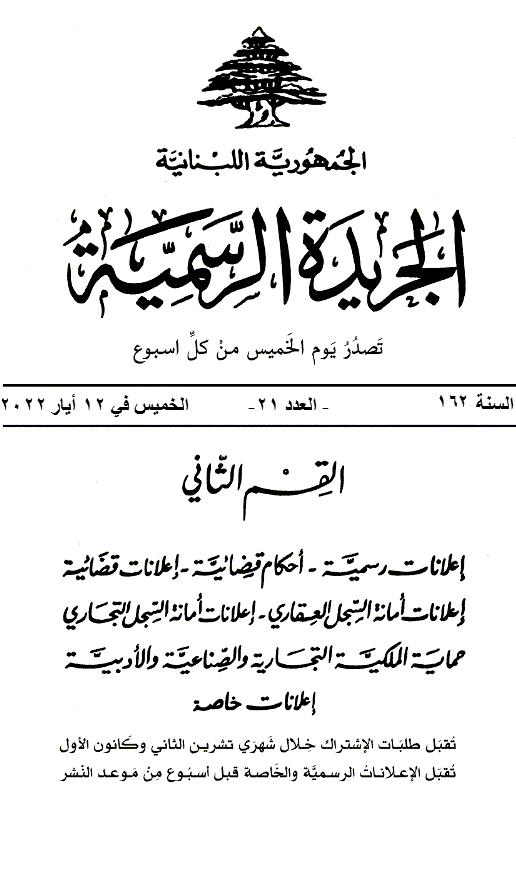 الجمهورية اللبنانية
الجريدة الرسمية
تَصدُرُ يَوم الخَميس مِنْ كلِّ اسبوع
السنة ١٦٢ - العدد ٢١- الخميس في ١٢ أيار ٢٠٢٢
القِسْم الثّاني
إعلانات رسميَّة - أحكام قضائيَّة - إعلانات قضائية
إعلانات أمانة السِّجل العِقاري - إعلانات أمانة السِّجل التجاري
حماية الملكيَّة التجارية والصِّناعيَّة والأدبيَّة
إعلانات خاصة
تُقبَل طلبَات الإشتراك خِلال شَهرَي تشرين الثاني وكَانون الأول
تُقبَل الإعلانات الرسميَّة والخَاصة قبل أسبُوع مِنْ مَوعد النّشر